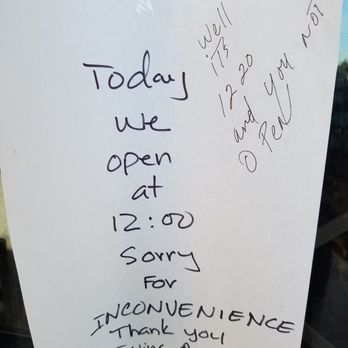 Today
we
open
at
12:00
Sorry
For
INCONVENIENCE
Thank you
Well
iTs
12 20
and you NOT
OPEN